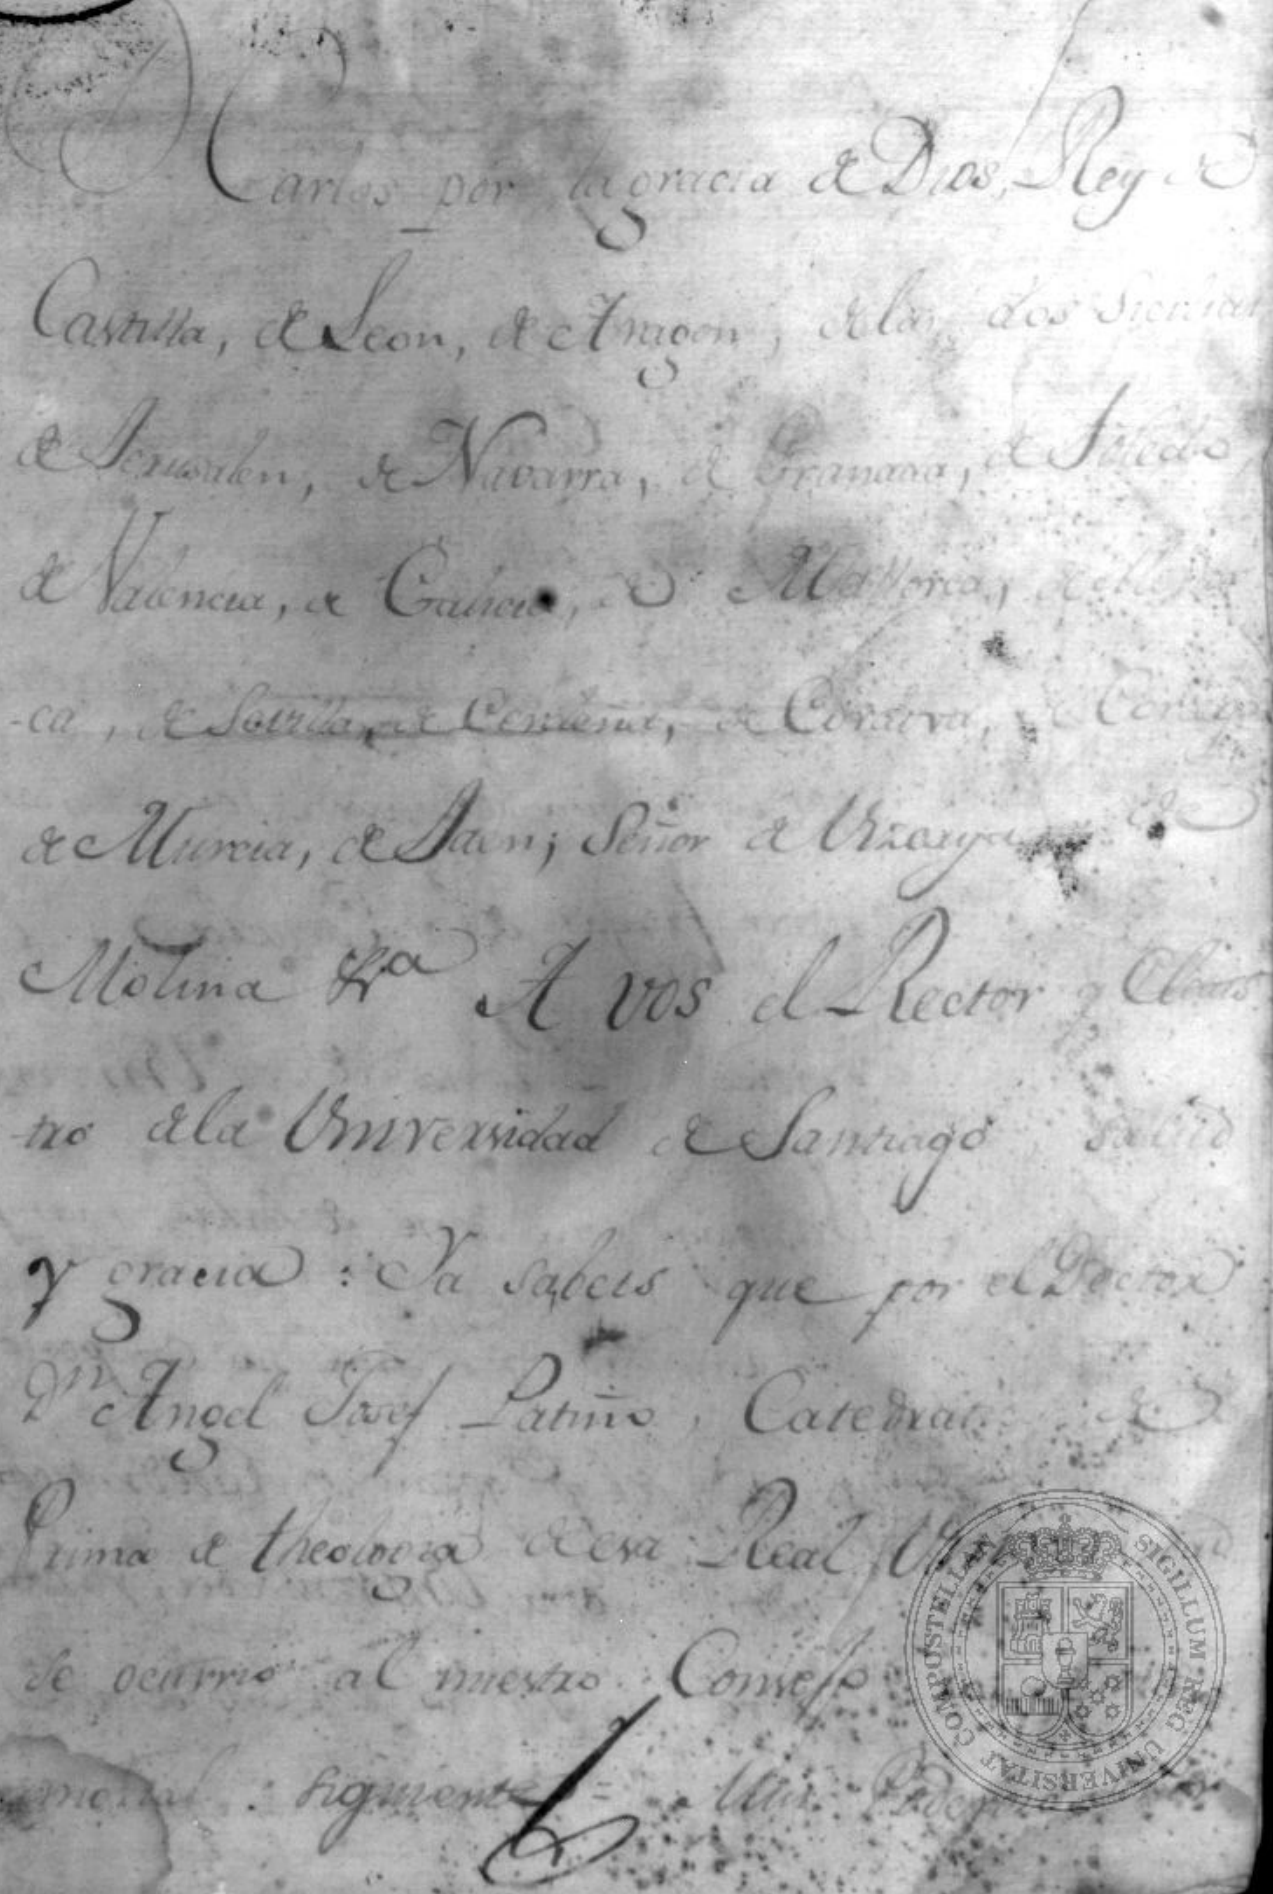 Carlos por la gracia de Dios, Rey de
Castilla, de Leon, de Aragon, delas dos Sicilias
de Jerusalen, de Navarra, de Granada, de Toledo,
de Valencia, de Galicia, de Mallorca,
-ca, de Sevilla, de Cerdeña, de Cordova, de
de Murcia, de Jaen; Señor de Vizcaya de
Molina &ra A vos el Rector y Claus
-tro dela Universidad de Santiago salud
y gracia: Ya sabeis que por el Doctor
Dn Angel Josef Patiño, de
Prima de theologia de esa Real
se ocurrio al nuestro Consejo
siguiente = Mui
SIGILLUM REG UNIVERSITAT COMPOSTELLAN